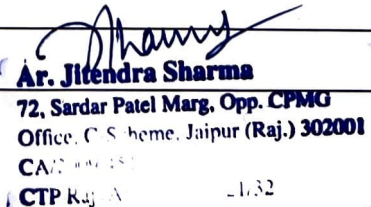 Sharma
Ar. Jitendra Sharma
72, Sardar Patel Marg, Opp. CPMG
Office, C-Scheme, Jaipur (Raj.) 302001
CA/
CTP Raj